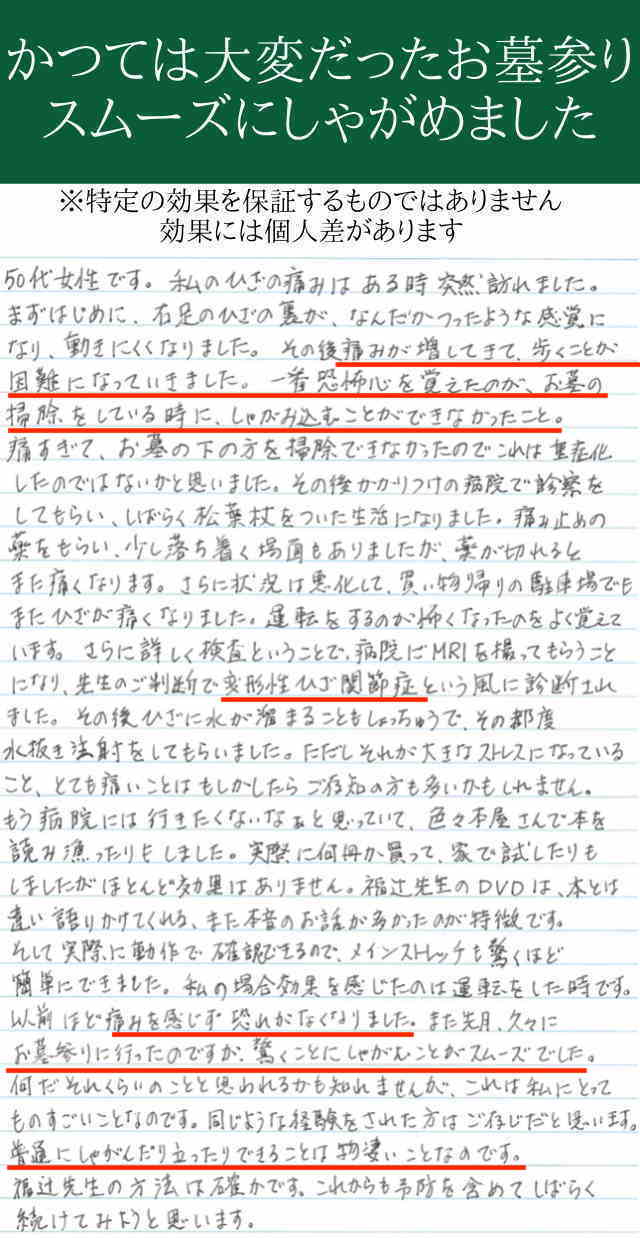 かつては大変だったお墓参り
スムーズにしゃがめました
※特定の効果を保証するものではありません
効果には個人差があります
50代女性です。私のひざの痛みはある時突然訪れました。
まずはじめに、右足のひざの裏が、なんだかつったような感覚に
なり、動きにくくなりました。その後痛みが増してきて、歩くことが
困難になっていきました。一番恐怖心を覚えたのが、お墓の
掃除をしている時に、しゃがみ込むことができなかったこと。
痛すぎて、お墓の下の方を掃除できなかったのでこれは重症化
したのではないかと思いました。その後かかりつけの病院で診察を
してもらい、しばらく松葉杖をついた生活になりました。痛み止めの
薬をもらい、少し落ち着く場面もありましたが、薬が切れると
また痛くなります。さらに状況は悪化して、買い物帰りの駐車場でも
またひざが痛くなりました。運転をするのが怖くなったのをよく覚えて
います。さらに詳しく検査ということで、病院にMRIを撮ってもらうこと
になり、先生のご判断で変形性ひざ関節症という風に診断され
ました。その後ひざに水が溜まることもしょっちゅうで、その都度
水抜き注射をしてもらいました。ただしそれが大きなストレスになっている
こと、とても痛いことはもしかしたらご存知の方も多いかもしれません。
もう病院には行きたくないなぁと思っていて、色々本屋さんで本を
読み漁ったりもしました。実際に何冊か買って、家で試したりも
しましたがほとんど効果はありません。福辻先生のDVDは、本とは
違い語りかけてくれる、また本音のお話が多かったのが特徴です。
そして実際に動作で確認できるので、メインストレッチも驚くほど
簡単にできました。私の場合効果を感じたのは運転をした時です。
以前ほど痛みを感じず恐れがなくなりました。また先月、久々に
お墓参りに行ったのですが、驚くことにしゃがむことがスムーズでした。
何だそれくらいのことと思われるかも知れませんが、これは私にとって
ものすごいことなのです。同じような経験をされた方はご存じだと思います。
普通にしゃがんだり立ったりできることは物凄いことなのです。
福辻先生の方法は確かです。これからも予防を含めてしばらく
続けてみようと思います。